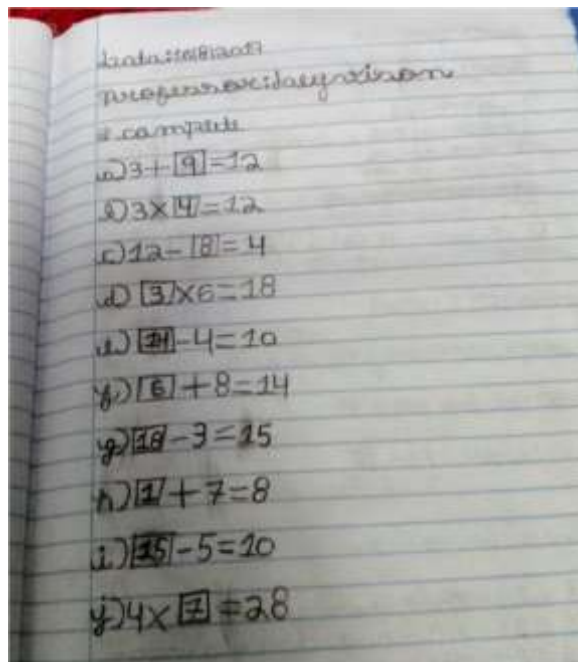 data:
professor:
complete
a) 3+9=12
b) 3×4=12
c) 12-8=4
d) 3×6=18
e) 14-4=10
f) 6+8=14
g) 18-3=15
h) 1+7=8
i) 15-5=10
j) 4×7=28